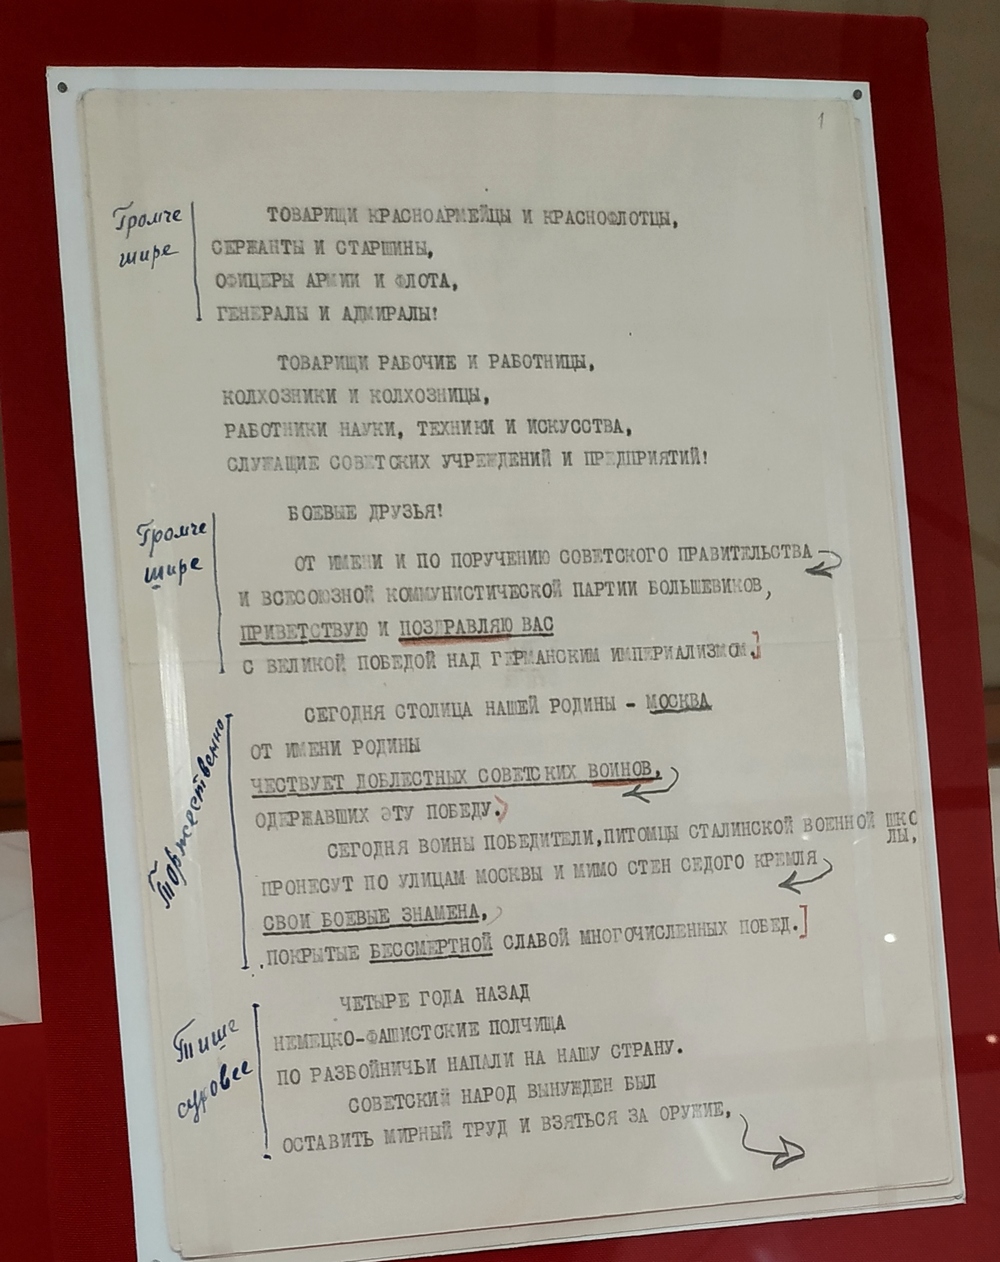 1
Громче
шире
ТОВАРИЩИ КРАСНОАРМЕЙЦЫ И КРАСНОФЛОТЦЫ,
СЕРЖАНТЫ И СТАРШИНЫ,
ОФИЦЕРЫ АРМИИ И ФЛОТА,
ГЕНЕРАЛЫ И АДМИРАЛЫ!
ТОВАРИЩИ РАБОЧИЕ И РАБОТНИЦЫ,
КОЛХОЗНИКИ И КОЛХОЗНИЦЫ,
РАБОТНИКИ НАУКИ, ТЕХНИКИ И ИСКУССТВА,
СЛУЖАЩИЕ СОВЕТСКИХ УЧРЕЖДЕНИЙ И ПРЕДПРИЯТИЙ!
БОЕВЫЕ ДРУЗЬЯ!
Громче
шире
ОТ ИМЕНИ И ПО ПОРУЧЕНИЮ СОВЕТСКОГО ПРАВИТЕЛЬСТВА
И ВСЕСОЮЗНОЙ КОММУНИСТИЧЕСКОЙ ПАРТИИ БОЛЬШЕВИКОВ,
ПРИВЕТСТВУЮ И ПОЗДРАВЛЯЮ ВАС
С ВЕЛИКОЙ ПОБЕДОЙ НАД ГЕРМАНСКИМ ИМПЕРИАЛИЗМОМ.]
Торжественно
СЕГОДНЯ СТОЛИЦА НАШЕЙ РОДИНЫ - МОСКВА
ОТ ИМЕНИ РОДИНЫ
ЧЕСТВУЕТ ДОБЛЕСТНЫХ СОВЕТСКИХ ВОИНОВ,
ОДЕРЖАВШИХ ЭТУ ПОБЕДУ.)
СЕГОДНЯ ВОИНЫ ПОБЕДИТЕЛИ,ПИТОМЦЫ СТАЛИНСКОЙ ВОЕННОЙ ШКО
ЛЫ,
ПРОНЕСУТ ПО УЛИЦАМ МОСКВЫ И МИМО СТЕН СЕДОГО КРЕМЛЯ
СВОИ БОЕВЫЕ ЗНАМЕНА,)
.ПОКРЫТЫЕ БЕССМЕРТНОЙ СЛАВОЙ МНОГОЧИСЛЕННЫХ ПОБЕД.]
Тише
суровее
ЧЕТЫРЕ ГОДА НАЗАД
НЕМЕЦКО-ФАШИСТСКИЕ ПОЛЧИЩА
ПО РАЗБОЙНИЧЬИ НАПАЛИ НА НАШУ СТРАНУ.
СОВЕТСКИЙ НАРОД ВЫНУЖДЕН БЫЛ
ОСТАВИТЬ МИРНЫЙ ТРУД И ВЗЯТЬСЯ ЗА ОРУЖИЕ,